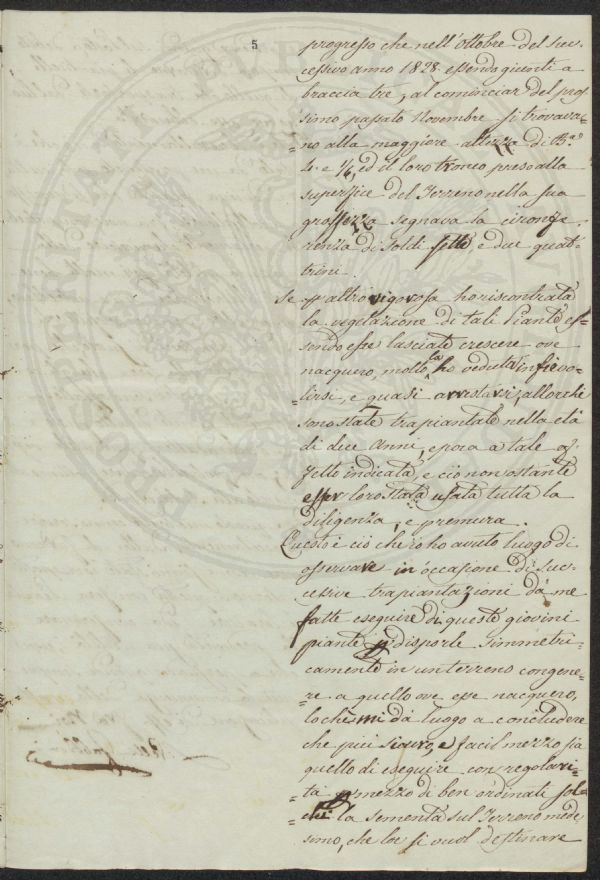 5
progresso che nell'ottobre del suc-
cessivo anno 1828 essendo giunti a
braccia tre, al cominciar del pros
simo passato Novembre si trovava=
=no alla maggiore altezza di B.a
4. e 1/6, ed il loro tronco presso alla
superfice del Terreno nella sua
grossezza segnava la circonfe
renza di Soldi sette, e due quat-
trini.
Se p altro vigorosa ho riscontrata
la vegetazione di tali Piante es-
sendo esse lasciate crescere ove
nacquero, molto la ho veduta infievo-
=lirsi, e quasi arrestarsi, allorchè
sono state trapiantate nella età
di due Anni, epoca a tale og-
getto indicata, e ciò non ostante
esser loro stata usata tutta la
diligenza, e premura.
Questo è ciò che io ho avuto luogo di
osservare in occasione di suc-
cessive trapiantazioni da me
fatte eseguire di queste giovini
piante p disporle simmetri-
camente in un terreno congene=
=re a quello ove esse nacquero,
lo che mi dà luogo a concludere
che più sicuro, e facil mezzo sia
quello di eseguire con regolari=
=tà p mezzo di ben ordinati sol=
=chi la sementa sul Terreno mede
simo, che loe si vuol destinare